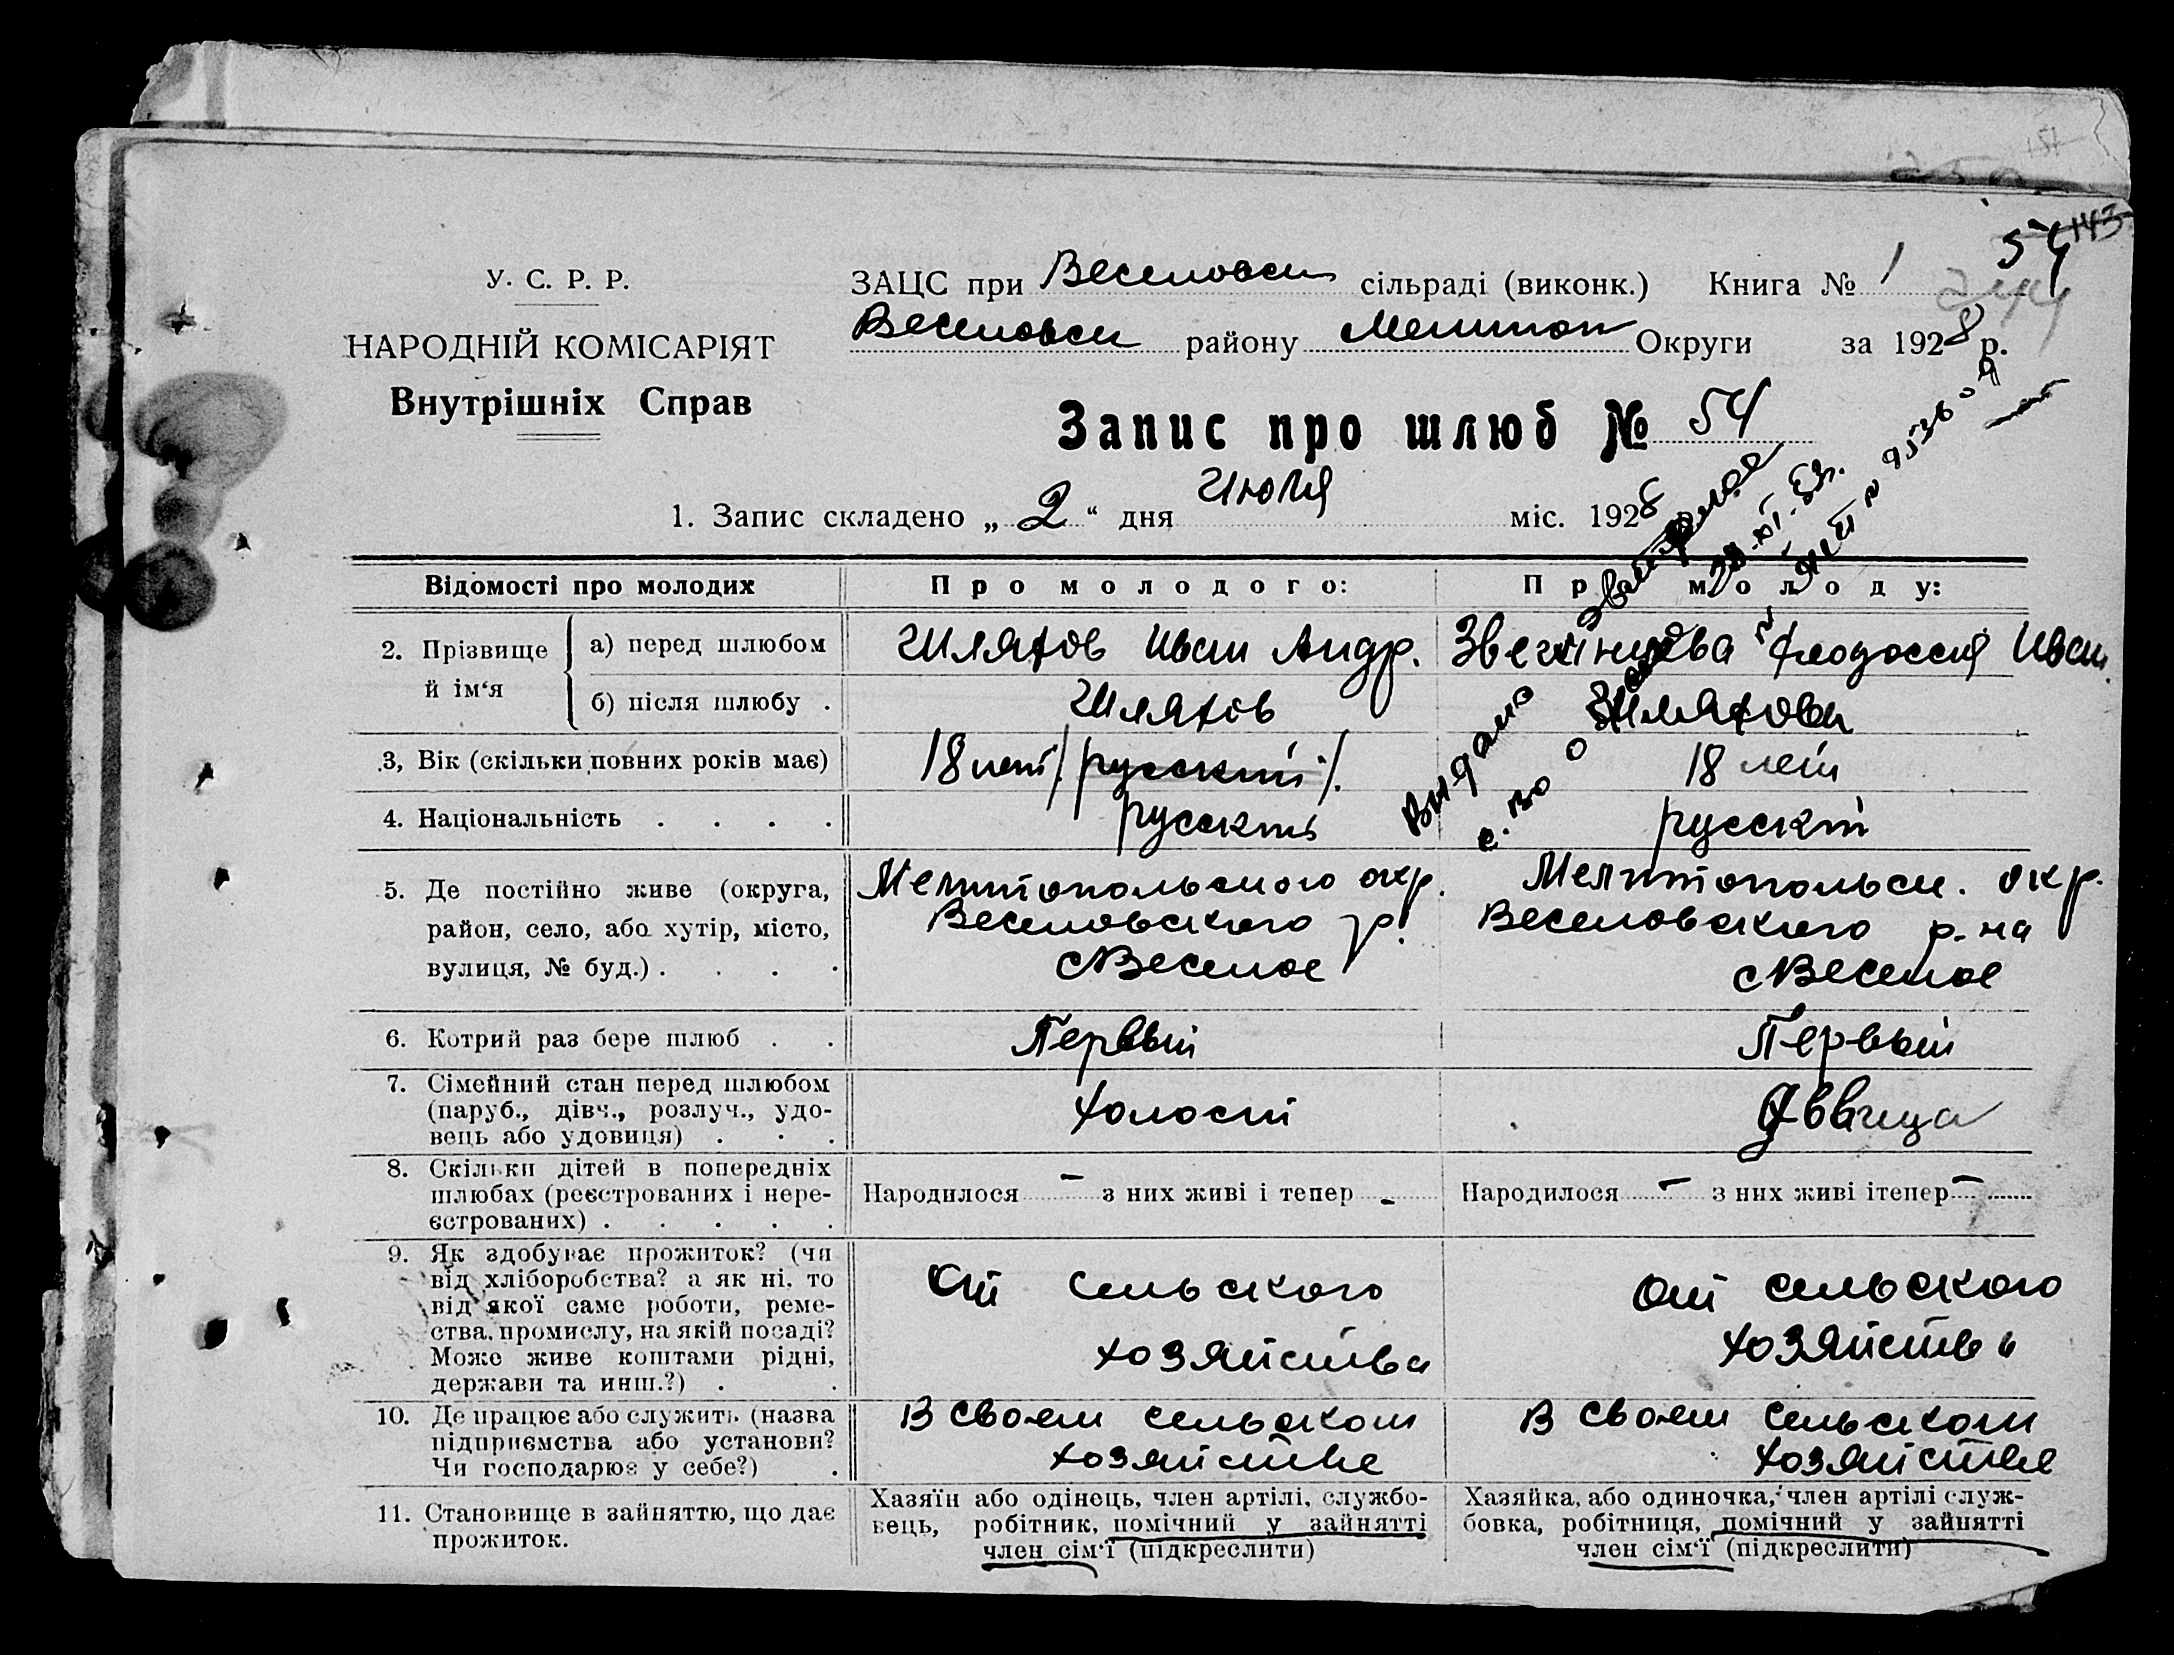 143
54
244
У. С. Р. Р.
НАРОДНІЙ КОМІСАРІЯТ
Внутрішніх Справ
ЗАЦС при Веселовск сільраді (виконк.) Книга № 1
Веселовск району Мелитоп Округи за 1928 р.
Запис про шлюб № 54
1. Запис складено „ 2 “ дня Июля міс. 1928 р.
Відомості про молодих
Про молодого:
Про молоду:
2. Прізвище й ім‘я
а) перед шлюбом
Шляхов Иван Андр.
Феодоссия Иван.
б) після шлюбу .
Шляхов
Шляхова
3, Вік (скільки повних років має)
18 лет /. русский ./.
18 лет
4. Національність . . . .
русский
русский
5. Де постійно живе (округа,
район, село, або хутір, місто,
вулиця, № буд.) . . . .
Мелитопольского окр.
Веселовского р.
с Веселое
Мелитопольск. окр.
Веселовского р-на
с Веселое
6. Котрий раз бере шлюб . .
Первый
Первый
7. Сімейний стан перед шлюбом
(паруб., дівч., розлуч., удо-
вець або удовиця) . . .
холост
Девица
8. Скільки дітей в попередніх
шлюбах (реєстрованих і нере-
єстрованих) . . . . .
Народилося – з них живі і тепер –
Народилося – з них живі ітепер –
9. Як здобуває прожиток? (чи
від хліборобства? а як ні, то
від якої саме роботи, реме-
ства, промислу, на якій посаді?
Може живе коштами рідні,
держави та инш.?) . .
От сельского
хозяйства
от сельского
хозяйства
10. Де працює або служить (назва
підприємства або установи?
Чи господарює у себе?) .
В своем сельском
хозяйстве
В своем сельском
хозяйстве
11. Становище в зайняттю, що дає
прожиток.
Хазяїн або одінець, член артілі, службо-
вець, робітник, помічний у зайнятті
член сім‘ї (підкреслити)
Хазяйка, або одиночка, член артілі служ-
бовка, робітниця, помічний у зайнятті
член сім‘ї (підкреслити)
Выдано